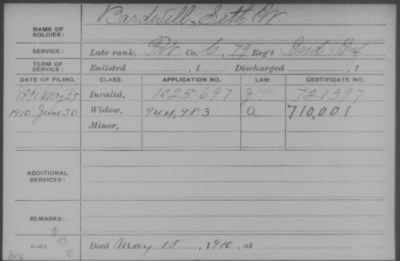 NAME OF SOLDIER: Bardwell, Seth W
SERVICE: Late rank, Pvt Co. C, 79 Reg't Ind Inf
TERM OF SERVICE: Enlisted , 1 Discharged , 1
DATE OF FILING. CLASS. APPLICATION NO. LAW. CERTIFICATE NO.
1891 25 Invalid, 1025697 721397
1910 June 30 Widow, 944,983 a 710,001
Minor,
ADDITIONAL SERVICES:
REMARKS:
Died May 18, 1910, at